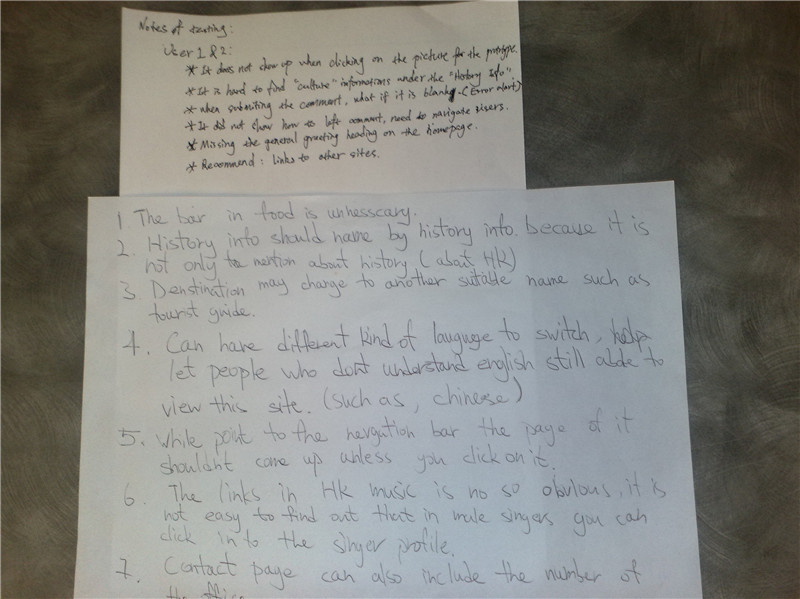 Notes of testing:
User 1 & 2:
* It does not show up when clicking on the picture for the prototype
* It is hard to find "culture" informations under the "History Info"
* when submiting the comment, what if it is blank. (Error alert)
* It did not show how to left comment, need to navigate users.
* Missing the general greeting heading on the homepage.
* Recommend: links to other sites.
1 The bar in food is unnesscary.
2. History info should name by history info. because it is
not only to mention about history (about HK)
3. Denstination may change to another suitable name such as
tourst guide.
4. Can have different kind of lauguge to switch, help
let people who dont understand english still able to
view this site. (such as, chinese)
5. While point to the nevgation bar the page of it
shouldnt come up unless you click on it.
6. The links in HK music is no so obvious, it is
not easy to find out that in male singers you can
click in to the singer profile.
7. Contact page can also include the number of
the office